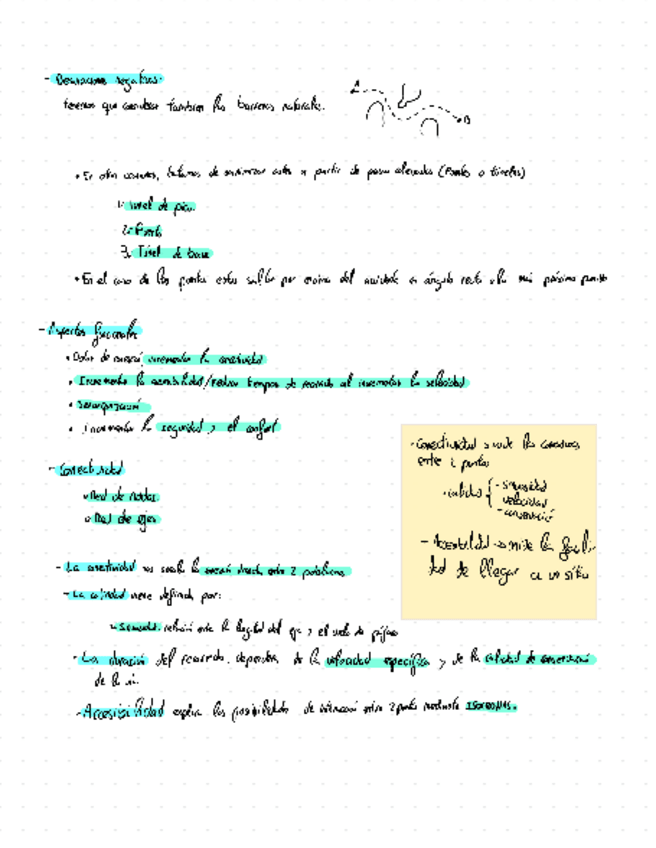 - Desviaciones negativas:
tenemos que considerar tambien las barreras naturales.
A
B
• En otras ocasiones, tratamos de minimizar estas a partir de pasos elevados (Puentes o túneles)
1. Túnel de pico.
2. Puente
3. Túnel de base
• En el caso de los puentes estos salen por encima del en ángulo recto a lo más próximo
- Aspectos funcionales
• de incrementar la conectividad
• Incrementar la accesibilidad/reducir tiempos de recorrido al incrementar la velocidad
• Jerarquización
• incrementar la seguridad y el confort
- Conectividad
Red de nodos
Red de ejes
- La conectividad nos la conexión directa entre 2 poblaciones
- La calidad viene definida por:
Sinuosidad: relación entre la longitud del eje y el
- La duración del recorrido, dependerá de la velocidad específica y de la calidad de conservación
de la vía.
- Accesibilidad explica las posibilidades de interacción entre 2 puntos mediante ISOCRONAS.
- Conectividad → mide las conexiones
entre 2 puntos
• calidad { - sinuosidad
- velocidad
- conservació
- Accesibilidad → mide la facili-
dad de llegar a un sitio